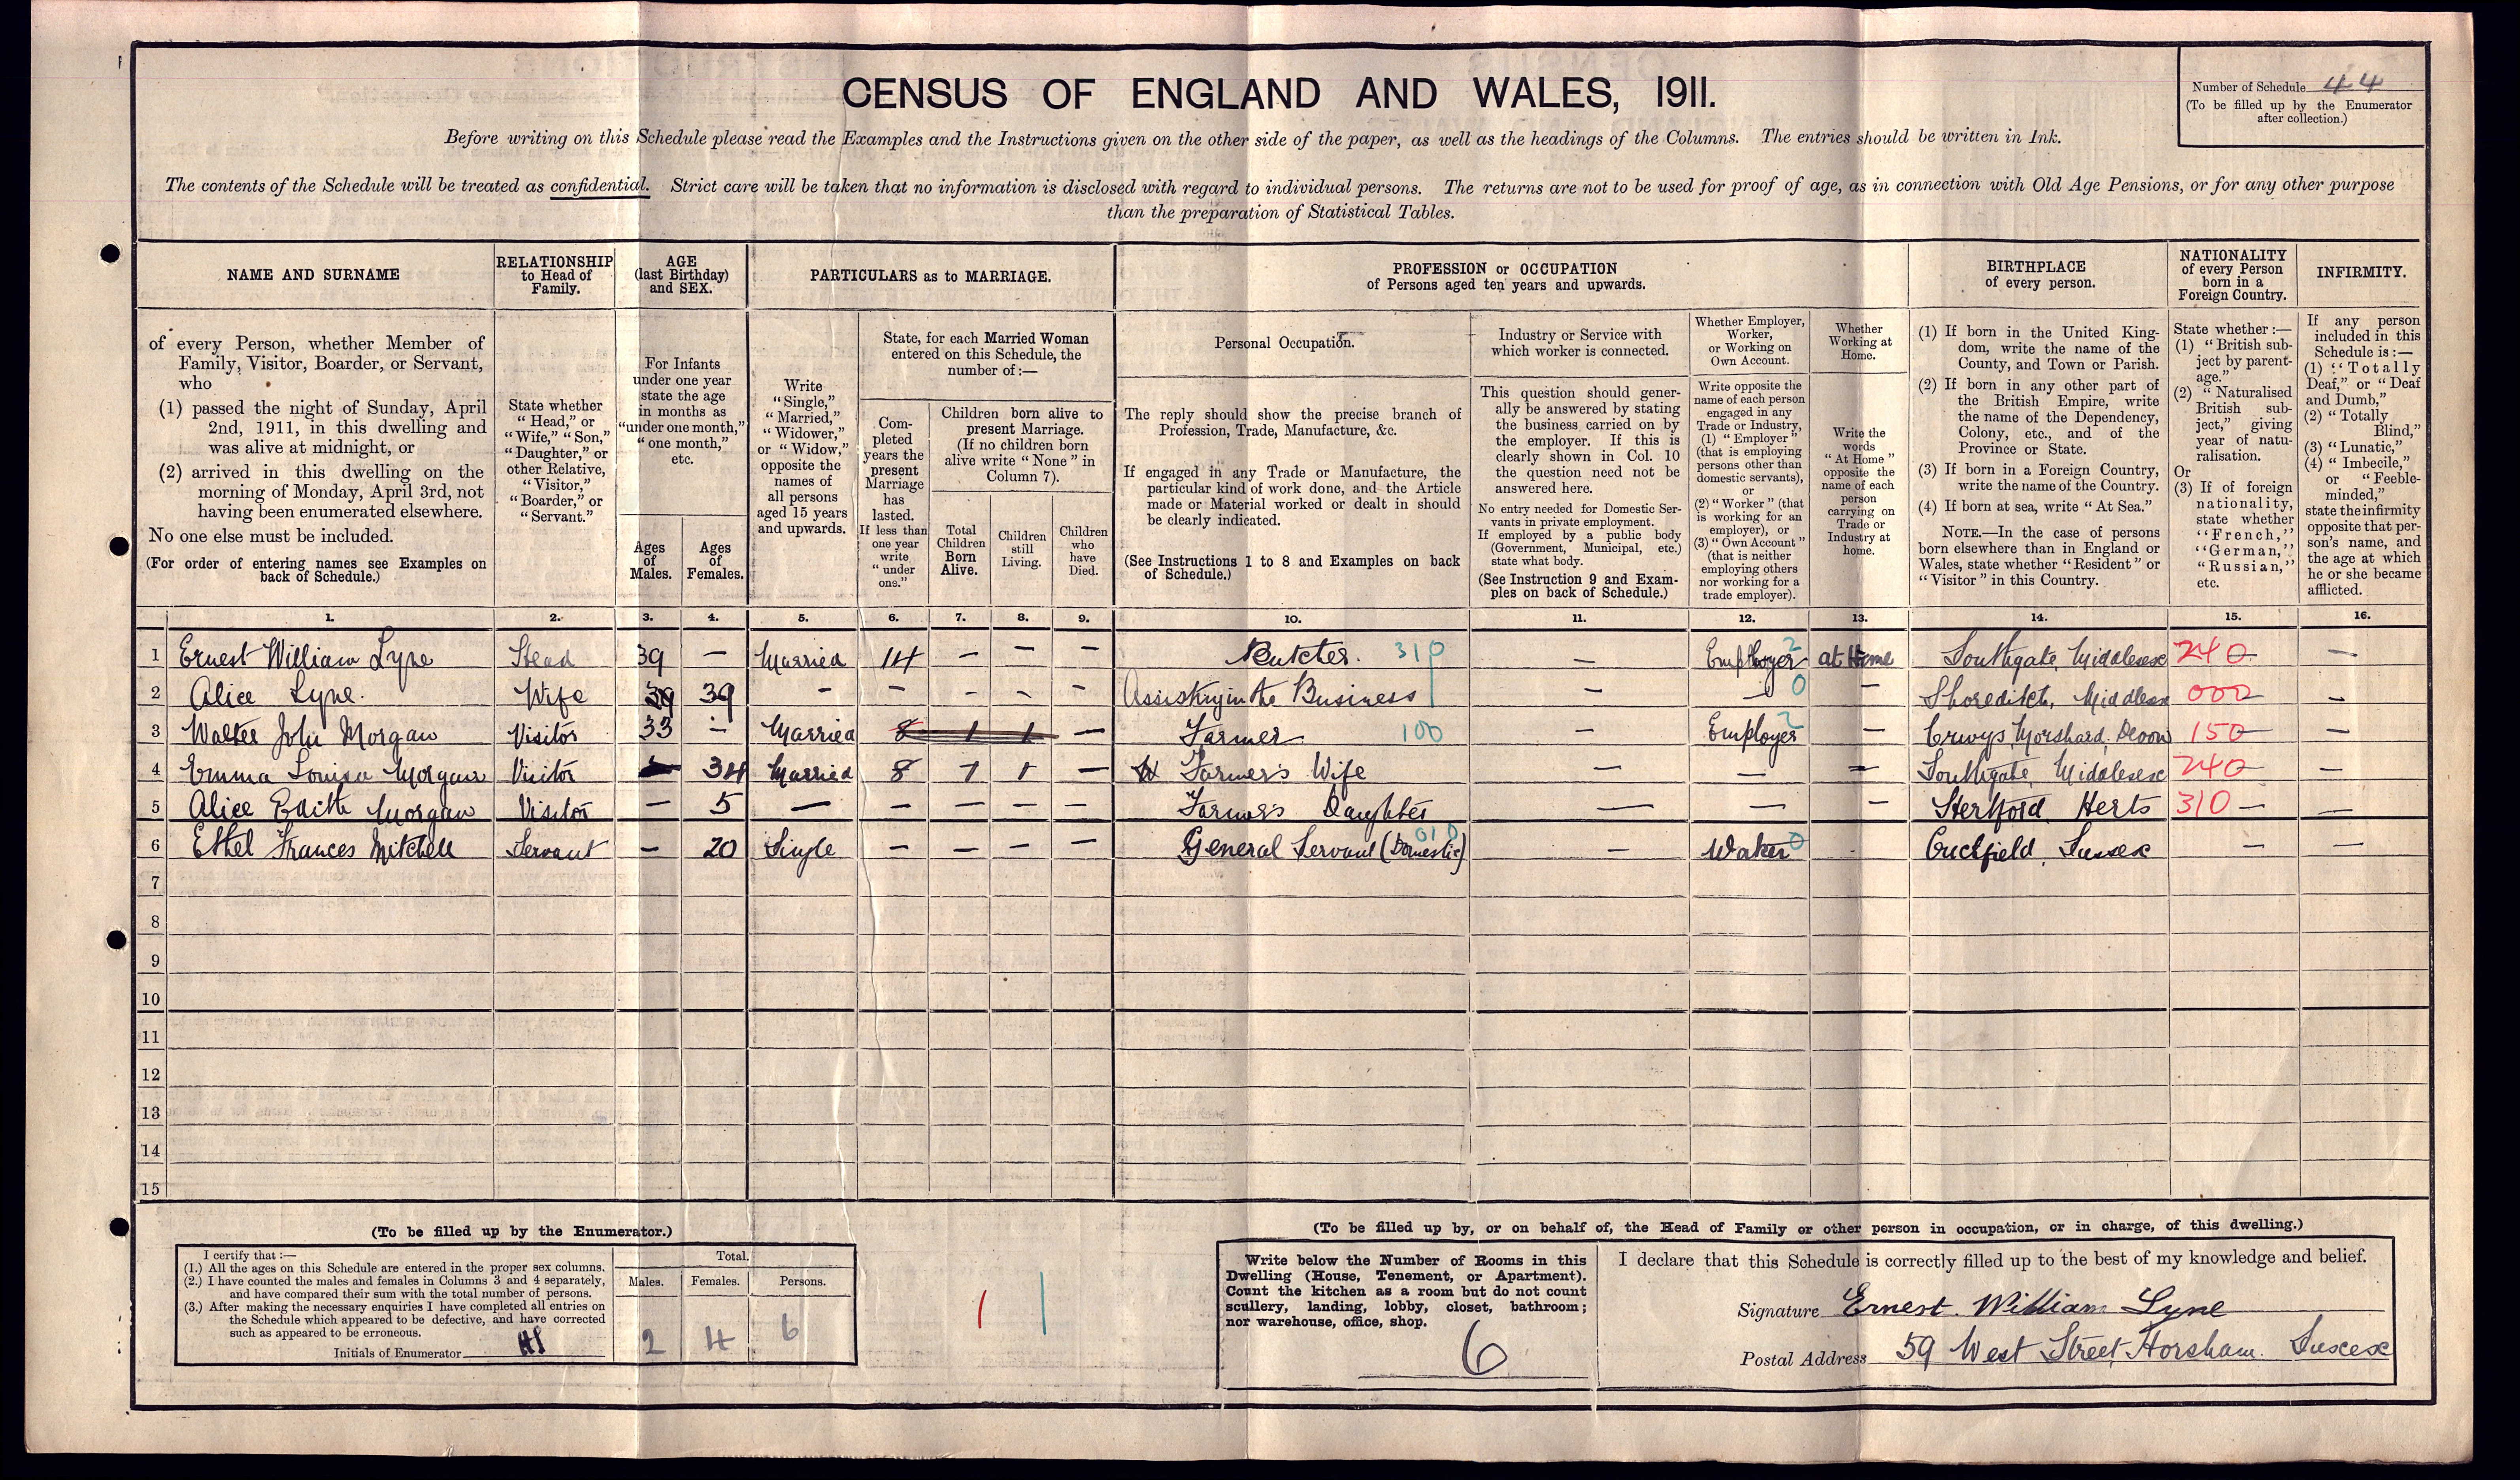 CENSUS OF ENGLAND AND WALES, 1911.
Number of Schedule 44
(To be filled up by the Enumerator
after collection.)
Before writing on this Schedule please read the Examples and the Instructions given on the other side of the paper, as well as the headings of the Columns. The entries should be written in Ink.
The contents of the Schedule will be treated as confidential. Strict care will be taken that no information is disclosed with regard to individual persons. The returns are not to be used for proof of age, as in connection with Old Age Pensions, or for any other purpose
than the preparation of Statistical Tables.
NAME AND SURNAME
of every Person, whether Member of
Family, Visitor, Boarder, or Servant,
who
(1) passed the night of Sunday, April
2nd, 1911, in this dwelling and
was alive at midnight, or
(2) arrived in this dwelling on the
morning of Monday, April 3rd, not
having been enumerated elsewhere.
No one else must be included.
(For order of entering names see Examples on
back of Schedule.)
RELATIONSHIP
to Head of
Family.
State whether
"Head," or
"Wife," "Son,"
"Daughter," or
other Relative,
"Visitor,"
"Boarder," or
"Servant."
AGE
(last Birthday)
and SEX.
For Infants
under one year
state the age
in months as
"under one month,"
"one month,"
etc.
Ages
of
Males.
Ages
of
Females.
PARTICULARS as to MARRIAGE.
Write
"Single,"
"Married,"
"Widower,"
or "Widow,"
opposite the
names of
all persons
aged 15 years
and upwards.
State, for each Married Woman
entered on this Schedule, the
number of:—
Com-
pleted
years the
present
Marriage
has
lasted.
If less than
one year
write
"under
one."
Children born alive to
present Marriage.
(If no children born
alive write "None" in
Column 7).
Total
Children
Born
Alive.
Children
still
Living.
Children
who
have
Died.
PROFESSION or OCCUPATION
of Persons aged ten years and upwards.
Personal Occupation.
The reply should show the precise branch of
Profession, Trade, Manufacture, &c.
If engaged in any Trade or Manufacture, the
particular kind of work done, and the Article
made or Material worked or dealt in should
be clearly indicated.
(See Instructions 1 to 8 and Examples on back
of Schedule.)
Industry or Service with
which worker is connected.
This question should gener-
ally be answered by stating
the business carried on by
the employer. If this is
clearly shown in Col. 10
the question need not be
answered here.
No entry needed for Domestic Ser-
vants in private employment.
If employed by a public body
(Government, Municipal, etc.)
state what body.
(See Instruction 9 and Exam-
ples on back of Schedule.)
Whether Employer,
Worker,
or Working on
Own Account.
Write opposite the
name of each person
engaged in any
Trade or Industry,
(1) "Employer"
(that is employing
persons other than
domestic servants),
or
(2) "Worker" (that
is working for an
employer), or
(3) "Own Account"
(that is neither
employing others
nor working for a
trade employer).
Whether
Working at
Home.
Write the
words
"At Home"
opposite the
name of each
person
carrying on
Trade or
Industry at
home.
BIRTHPLACE
of every person.
(1) If born in the United King-
dom, write the name of the
County, and Town or Parish.
(2) If born in any other part of
the British Empire, write
the name of the Dependency,
Colony, etc., and of the
Province or State.
(3) If born in a Foreign Country,
write the name of the Country.
(4) If born at sea, write "At Sea."
NOTE.—In the case of persons
born elsewhere than in England or
Wales, state whether "Resident" or
"Visitor" in this Country.
NATIONALITY
of every Person
born in a
Foreign Country.
State whether:—
(1) "British sub-
ject by parent-
age."
(2) "Naturalised
British sub-
ject," giving
year of natu-
ralisation.
Or
(3) If of foreign
nationality,
state whether
"French,"
"German,"
"Russian,"
etc.
INFIRMITY.
If any person
included in this
Schedule is:—
(1) "Totally
Deaf," or "Deaf
and Dumb,"
(2) "Totally
Blind,"
(3) "Lunatic,"
(4) "Imbecile,"
or "Feeble-
minded,"
state the infirmity
opposite that per-
son's name, and
the age at which
he or she became
afflicted.
1. 2. 3. 4. 5. 6. 7. 8. 9. 10. 11. 12. 13. 14. 15. 16.
1 Ernest William Lyne Head 39 — Married 14 — — — Butcher. 310 — Employer 2 at Home Southgate, Middlesex 240 —
2 Alice Lyne. Wife 39 39 - - - - - Assisting in the Business — — 0 — Shoreditch, Middlesex 000 —
3 Walter John Morgan Visitor 33 — Married 8 1 1 — Farmer 100 — Employer 2 — Cruwys, Morshard, Devon 150 —
4 Emma Louisa Morgan Visitor 34 Married 8 1 1 — Farmer's Wife — — — Southgate, Middlesex 240 —
5 Alice Edith Morgan Visitor — 5 — — — — — Farmer's Daughter — — — Hertford Herts 310 —
6 Ethel Frances Mitchell Servant — 20 Single — — — — General Servant (Domestic) 010 — Worker 0 — Cuckfield, Sussex — —
7
8
9
10
11
12
13
14
15
(To be filled up by the Enumerator.)
I certify that:—
(1.) All the ages on this Schedule are entered in the proper sex columns.
(2.) I have counted the males and females in Columns 3 and 4 separately,
and have compared their sum with the total number of persons.
(3.) After making the necessary enquiries I have completed all entries on
the Schedule which appeared to be defective, and have corrected
such as appeared to be erroneous.
Initials of Enumerator
Total.
Males. Females. Persons.
2 4 6
(To be filled up by, or on behalf of, the Head of Family or other person in occupation, or in charge, of this dwelling.)
Write below the Number of Rooms in this
Dwelling (House, Tenement, or Apartment).
Count the kitchen as a room but do not count
scullery, landing, lobby, closet, bathroom;
nor warehouse, office, shop.
6
I declare that this Schedule is correctly filled up to the best of my knowledge and belief.
Signature Ernest William Lyne
Postal Address 59 West Street, Horsham. Sussex